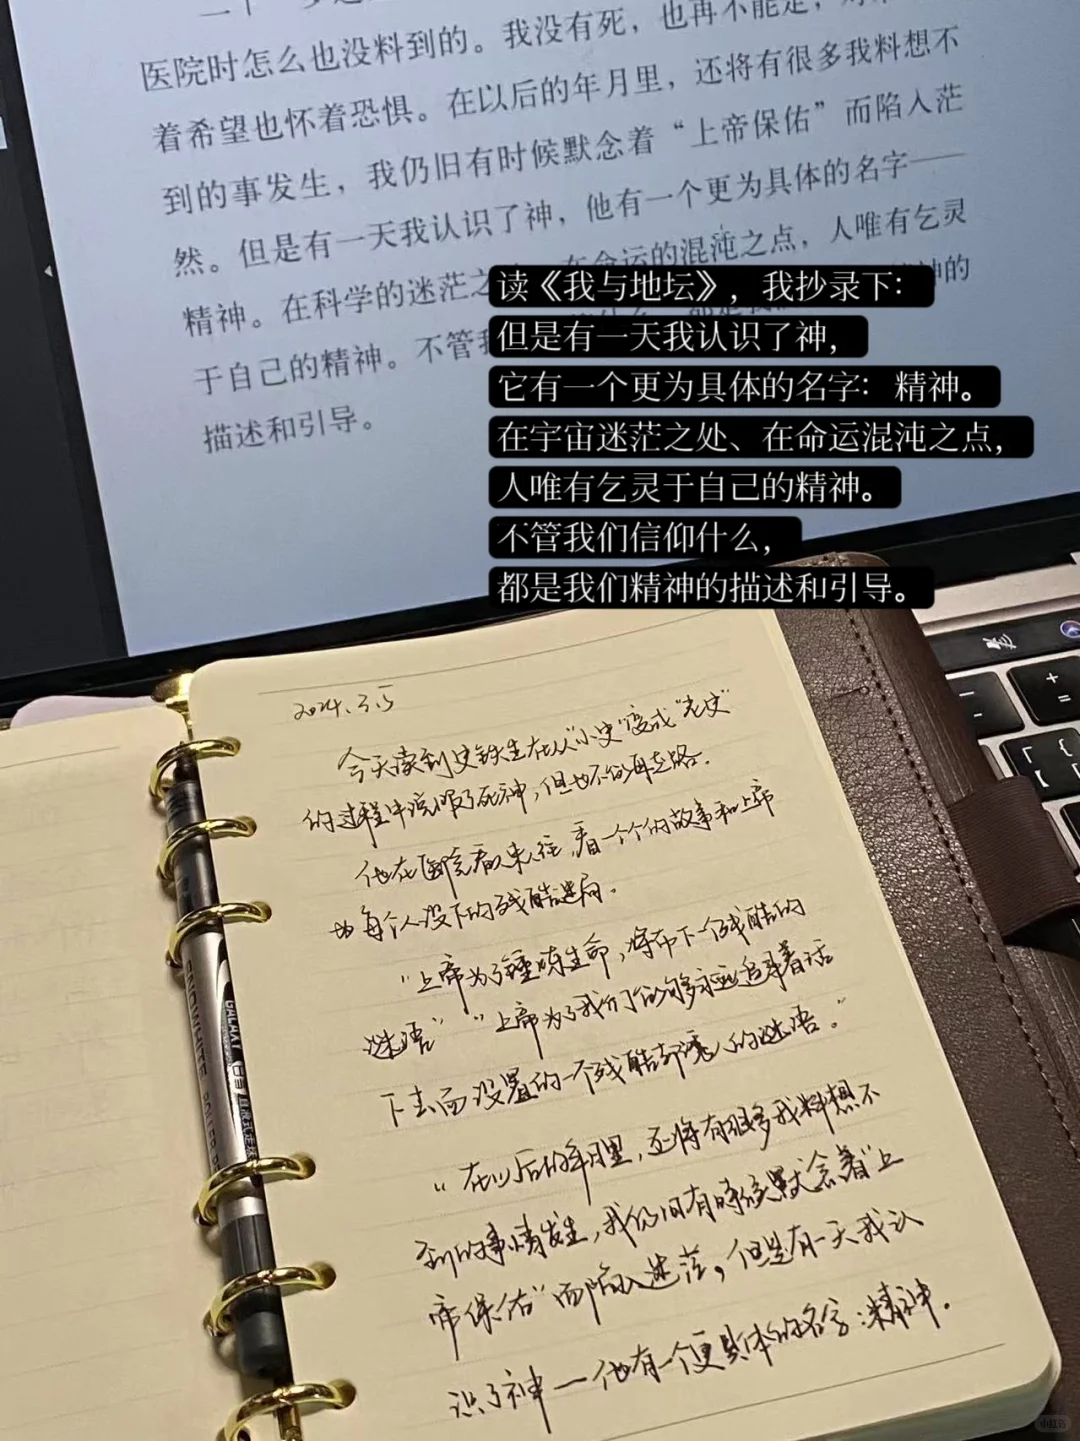 医院时怎么也没料到的。我没有死，也再不能走，
着希望也怀着恐惧。在以后的年月里，还将有很多我料想不
到的事发生，我仍旧有时候默念着“上帝保佑”而陷入茫
然。但是有一天我认识了神，他有一个更为具体的名字——
精神。在科学的迷茫之 在命运的混沌之点，人唯有乞灵
于自己的精神。不管我 的
描述和引导。
读《我与地坛》，我抄录下：
但是有一天我认识了神，
它有一个更为具体的名字：精神。
在宇宙迷茫之处、在命运混沌之点，
人唯有乞灵于自己的精神。
不管我们信仰什么，
都是我们精神的描述和引导。
2024.3.5
今天读到史铁生在从“小史”变成“老史”
的过程中说服了死神，但也不能再走路。
他在医院看人来人往，看一个个的故事和上帝
为每个人设下的残酷迷局。
“上帝为了锤炼生命，将布下一个残酷的
谜语” “上帝为了我们能够永远追寻着话
下去而设置的一个残酷却诱人的谜语。”
“在以后的年月里，还将有很多我料想不
到的事情发生，我仍旧有时候默念着“上
帝保佑”而陷入迷茫，但是有一天我认
识了神——他有一个更具体的名字：精神.
SNOWHITE
GALAXY
小红书